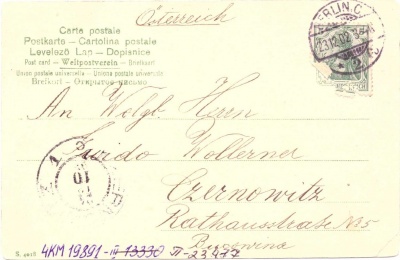 Österreich
Carte postale
Postkarte – Cartolina postale
Levelező Lap – Dopisnice
Post card – Weltpostverein – Briefkaart
Union postale universelle – Unione postale universale
Brefkort – Открытое письмо
BERLIN, C.
13.12.02
An Wolgb. Herrn
Guido Wollerner
Czernowitz
Rathausstraße No 5
Bucowina
4KM 19891 – III 13330 II – 23477